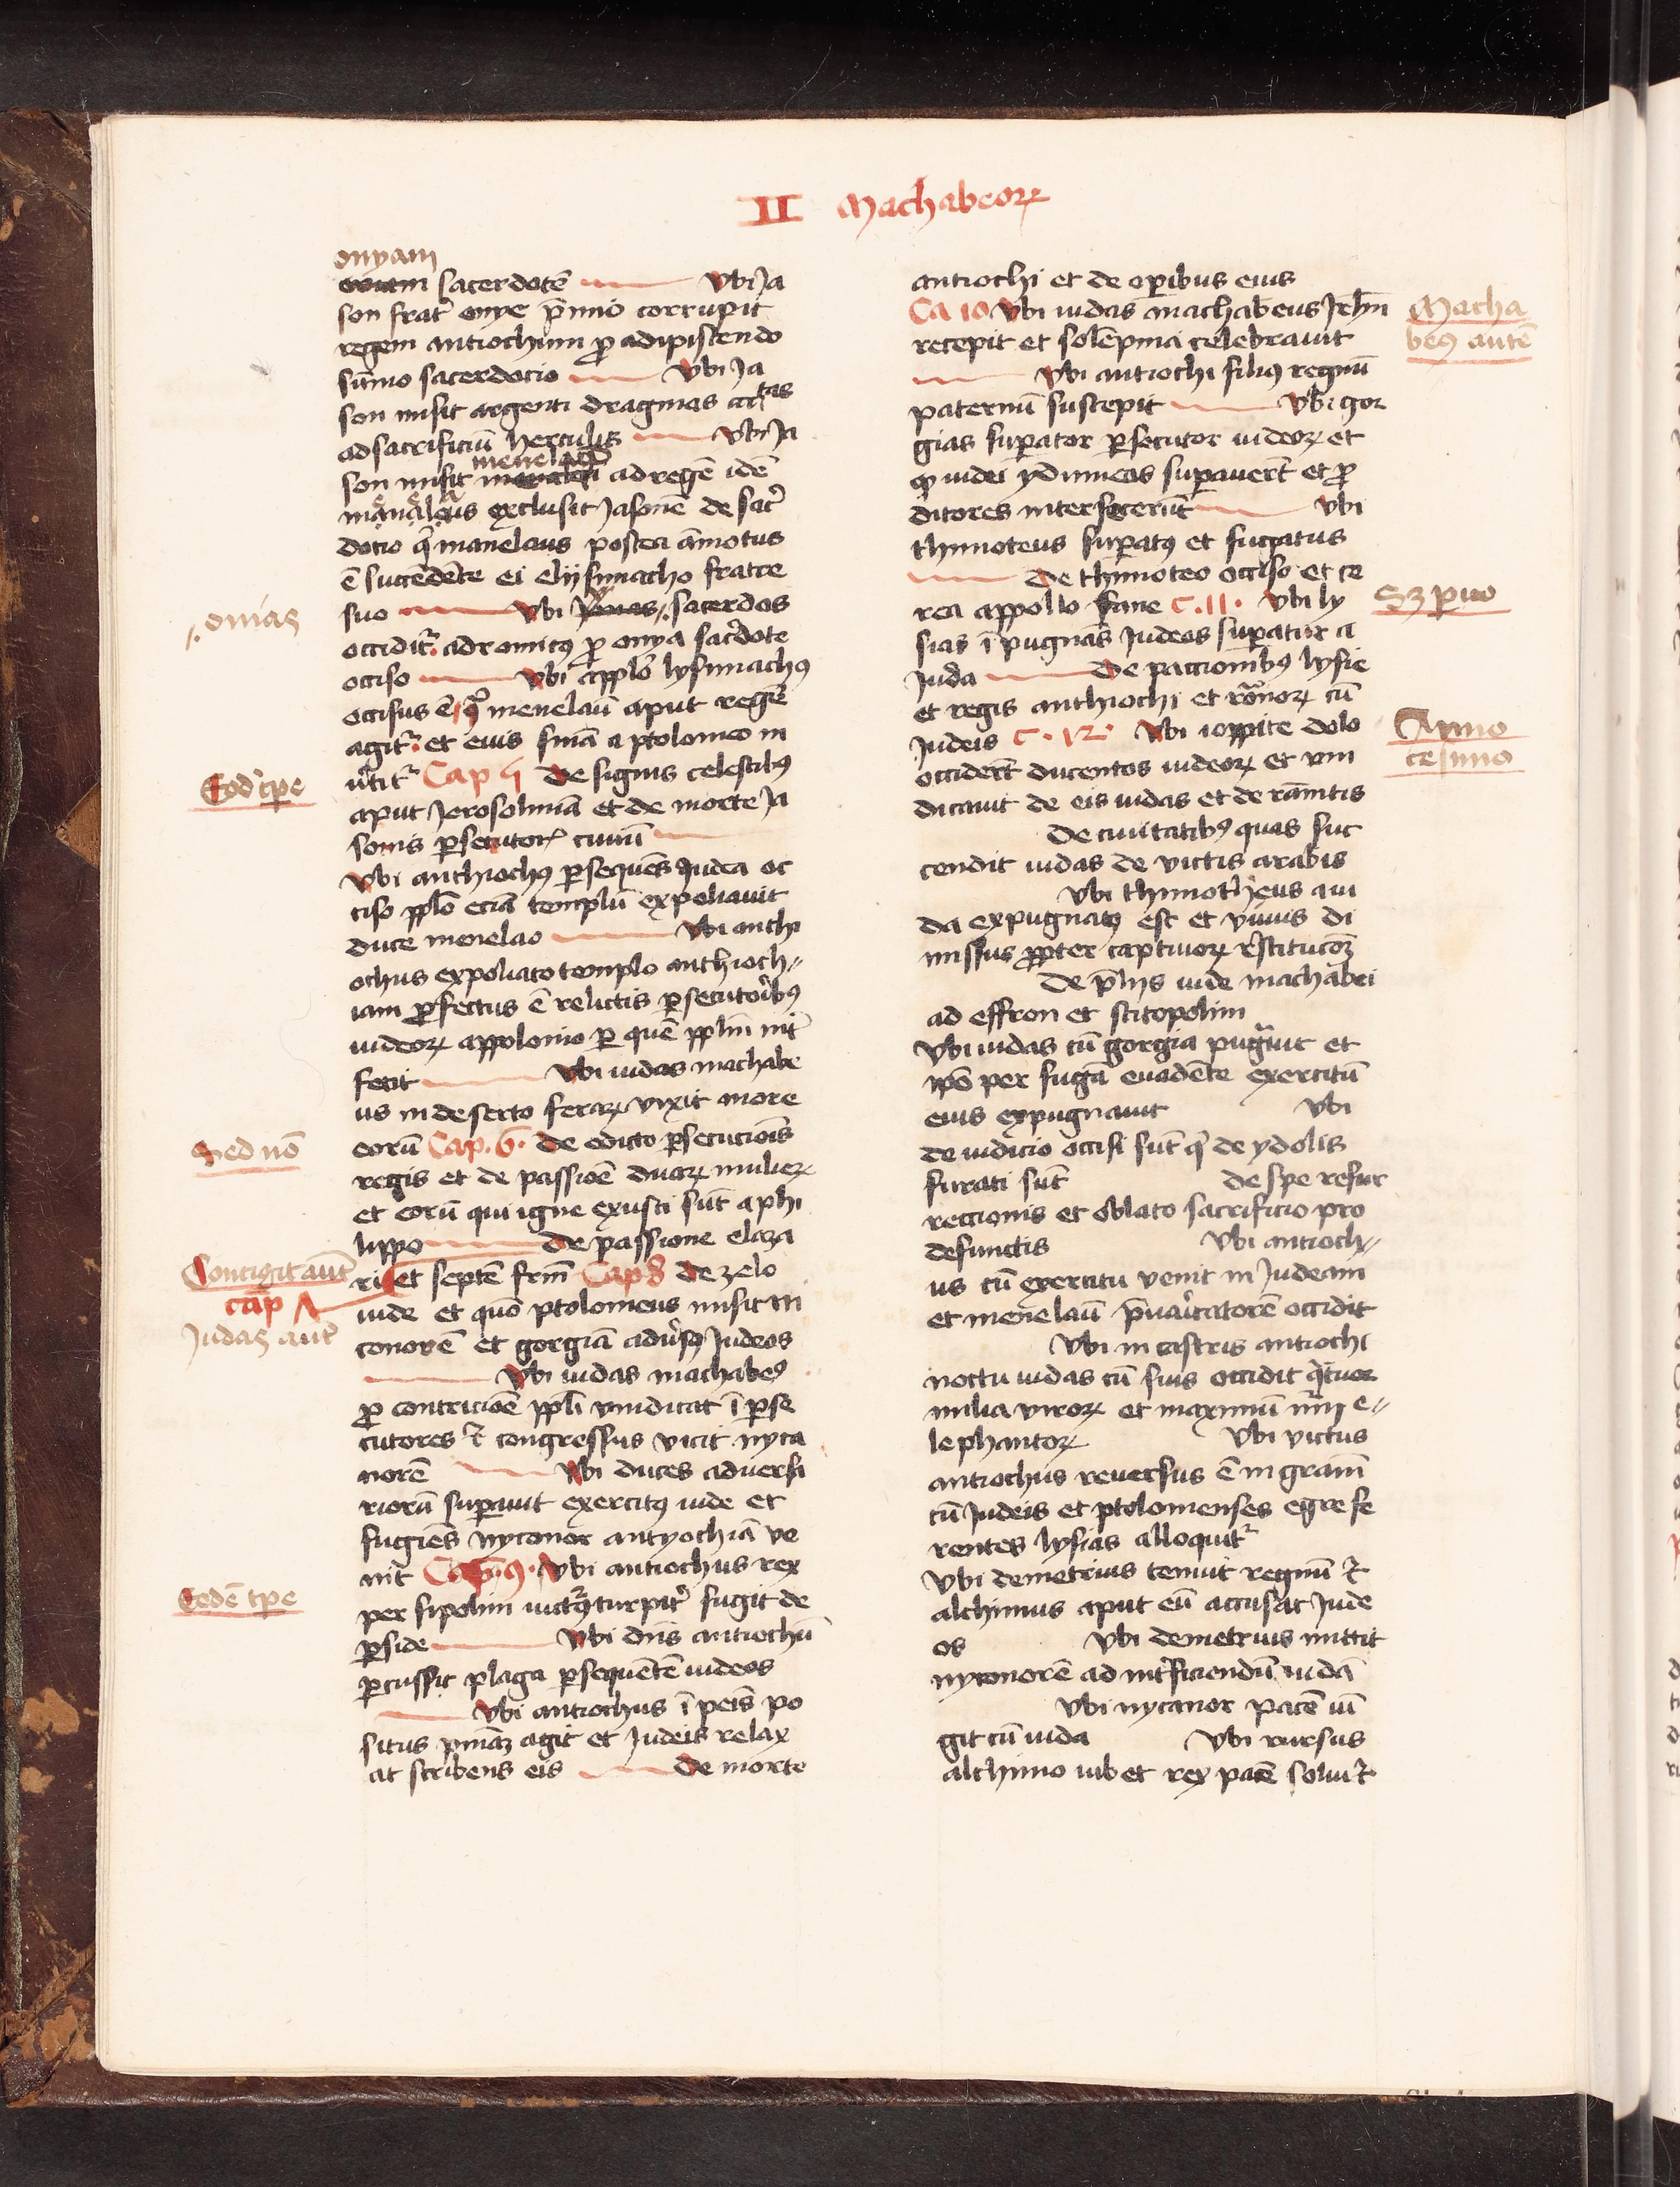 II Machabeoꝝ
onyam
sacerdotē vbi Ja
son frat̉ onye p̄mio corrupit
regem antiochum ꝓ adipiscendo
sūmo sacerdocio vbi Ja
son misit argenti dragmas
ad sacrificiū herculis vbi Ja
son misit menelaū ad regē idē
exclusit Jasonē de sac̉
docio manelaus postea āmotus
ē succēdēte ei fratre
suo vbi sacerdos
onias
occidit᷑ adromicꝰ ꝓ onya sac̉dote
occiso vbi lysimachꝰ
occisus ē menelaū aput regē
agit᷑ et eius sn̄ia a ptolomeo in
Eod' tp̄e
Cap 5 de signis celestibꝰ
aput Jerosolimā et de morte Ja
sonis ꝑsecutoꝝ ciuiū
vbi anthiochꝰ ꝑsequēs Judea oc
ciso pp̄lo eciā templū expoliauit
duce menelao vbi anthi
ochus expoliato templo anthioch//
iam ꝓfectus ē relictis ꝑsecutoribꝰ
iudeoꝝ appolonio ꝑ quē pp̄lm int̉
fecit vbi iudas machabe
us in deserto feraꝝ vixit more
Sed nō
eorū Cap. 6. de edicto ꝑsecucionis
regis et de passioē duaꝝ mulieꝝ
et eorū qui igne exusti sūt a phi
lippo de passione eleaza
Contigit aūt
ri et septē frm̄ Cap 8 de zelo
cap 7
iude et quō ptolomeus misit ni
Judas aut̉
conorē et gorgiā adūsꝰ Judeos
vbi iudas machabeꝰ
ꝓ contricioē pp̄li vindicat ī ꝑse
cutores et congressus vicit nyca
norē vbi duces aduersa
riorū suꝑauit exercitꝰ iude et
fugiēs nyconor antyochiā ve
nit Cap. 9. vbi antiochus rex
Eodē tp̄e
per sipolim uictꝰ turpit̉ fugit de
ꝑside vbi dn̄s antiochū
ꝑcussit plaga ꝑsequētē iudeos
vbi antiochus ī penis po
situs agit et Judeis relax
at scribens eis de morte
antiochi et de oꝑibus eius
Ca 10 vbi iudas machabeus Jrlm̄
Macha
beꝰ autē
recepit et solēpnia celebrauit
vbi antiochi filiꝰ regnū
paternū suscepit vbi gor
gias suꝑator ꝑsecutor iudeoꝝ et
ꝙ iudei ydumeos suꝑauerūt et ꝓ
ditores interfecerūt vbi
thimoteus suꝑatꝰ et fugatus
de thimoteo occiso et ce
rea appollo fane C. 11. vbi ly
Sꝫ paruo
sias ī pugnās Judeos suꝑatur a
Juda de paccionibꝰ lysie
et regis anthiochi et romanoꝝ cū
Judeis C. 12. vbi ioppite dolo
Anno
cesimo
occiderūt ducentos iudeoꝝ et vin
dicauit de eis iudas et de iāmitis
De ciuitatibꝰ quas suc
cendit iudas de victis arabis
vbi thimotheus a iu
da expugnatꝰ est et viuus di
missus ꝓpter captiuoꝝ
De p̄liis iude machabei
ad effron et scitopolim
vbi iudas cū gorgia pugnauit et
ipso per fugā euadente exercitū
eius expugnauit vbi
de iudicio occisi sūt qi de ydolis
furati sūt de spe resur
reccionis et oblato sacrificio pro
defunctis vbi antioch//
us cū exercitu venit in Judeam
et menelaū p̄uaricatorē occidit
vbi in castris antiochi
noctu iudas cū suis occidit q̄tuor
milia viroꝝ et maximū e//
lephantoꝝ vbi victus
antiochus reuersus ē in gram̄
cū Judeis et ptolomenses egre fe
rentes lysias alloquit᷑
vbi demetrius tenuit regnū et
alchimus aput eū accusat Jude
os vbi demetrius mittit
nyconorē ad int̉ficiendū iudā
vbi nycanor pacē iū
git cū iuda vbi rursus
alchimo iubet rex pacē solui et